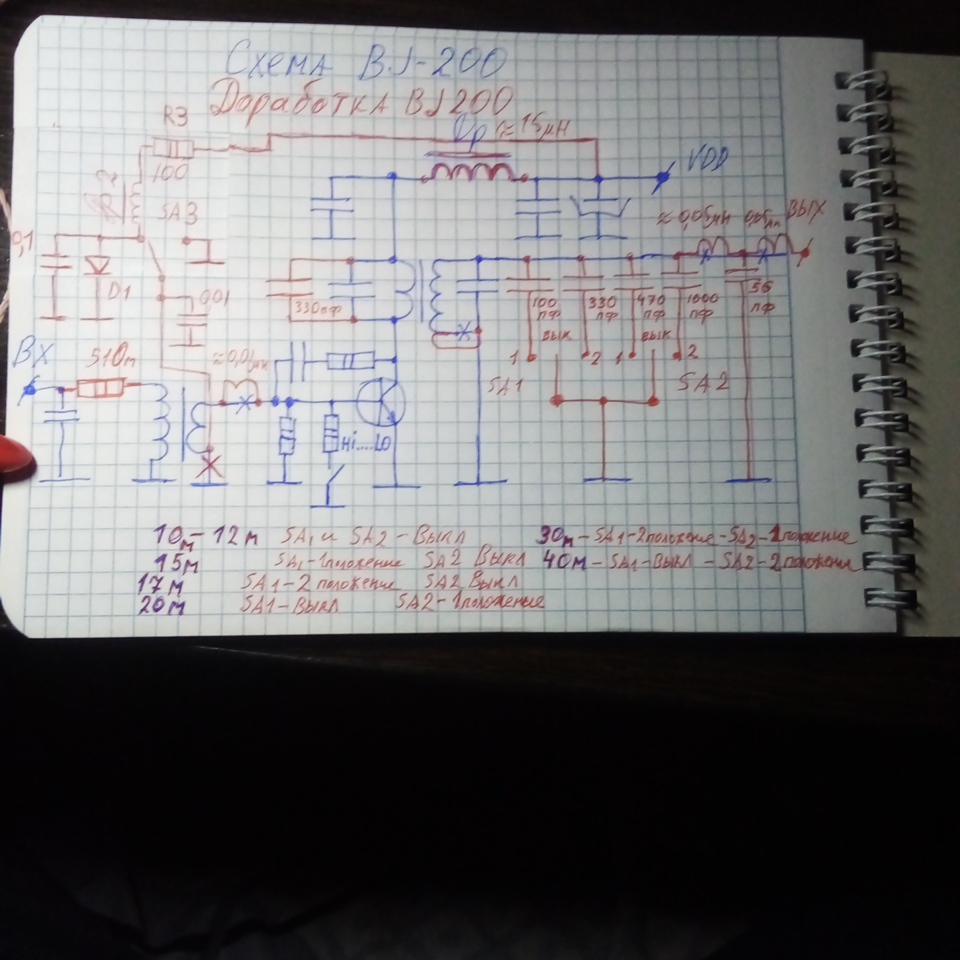 Схема BJ-200
Доработка BJ200
R3
Др ≈15μН
100
VDD
SA3
≈0,05μн 0,05μн ВЫХ
0,1
D1
001
330пф
100 пф
330 пф
470 пф
1000 пф
56 пф
ВХ
510м
≈0,01μн
вык
вык
1
2
1
2
SA1
SA2
Hi....LO
10м-12м SA1 и SA2-Выкл
30м-SA1-2положение-SA2-1положение
15м SA1-1положение SA2 Выкл
40м-SA1-Выкл-SA2-2положени
17м SA1-2положение SA2 Выкл
20м SA1-Выкл SA2-1положение